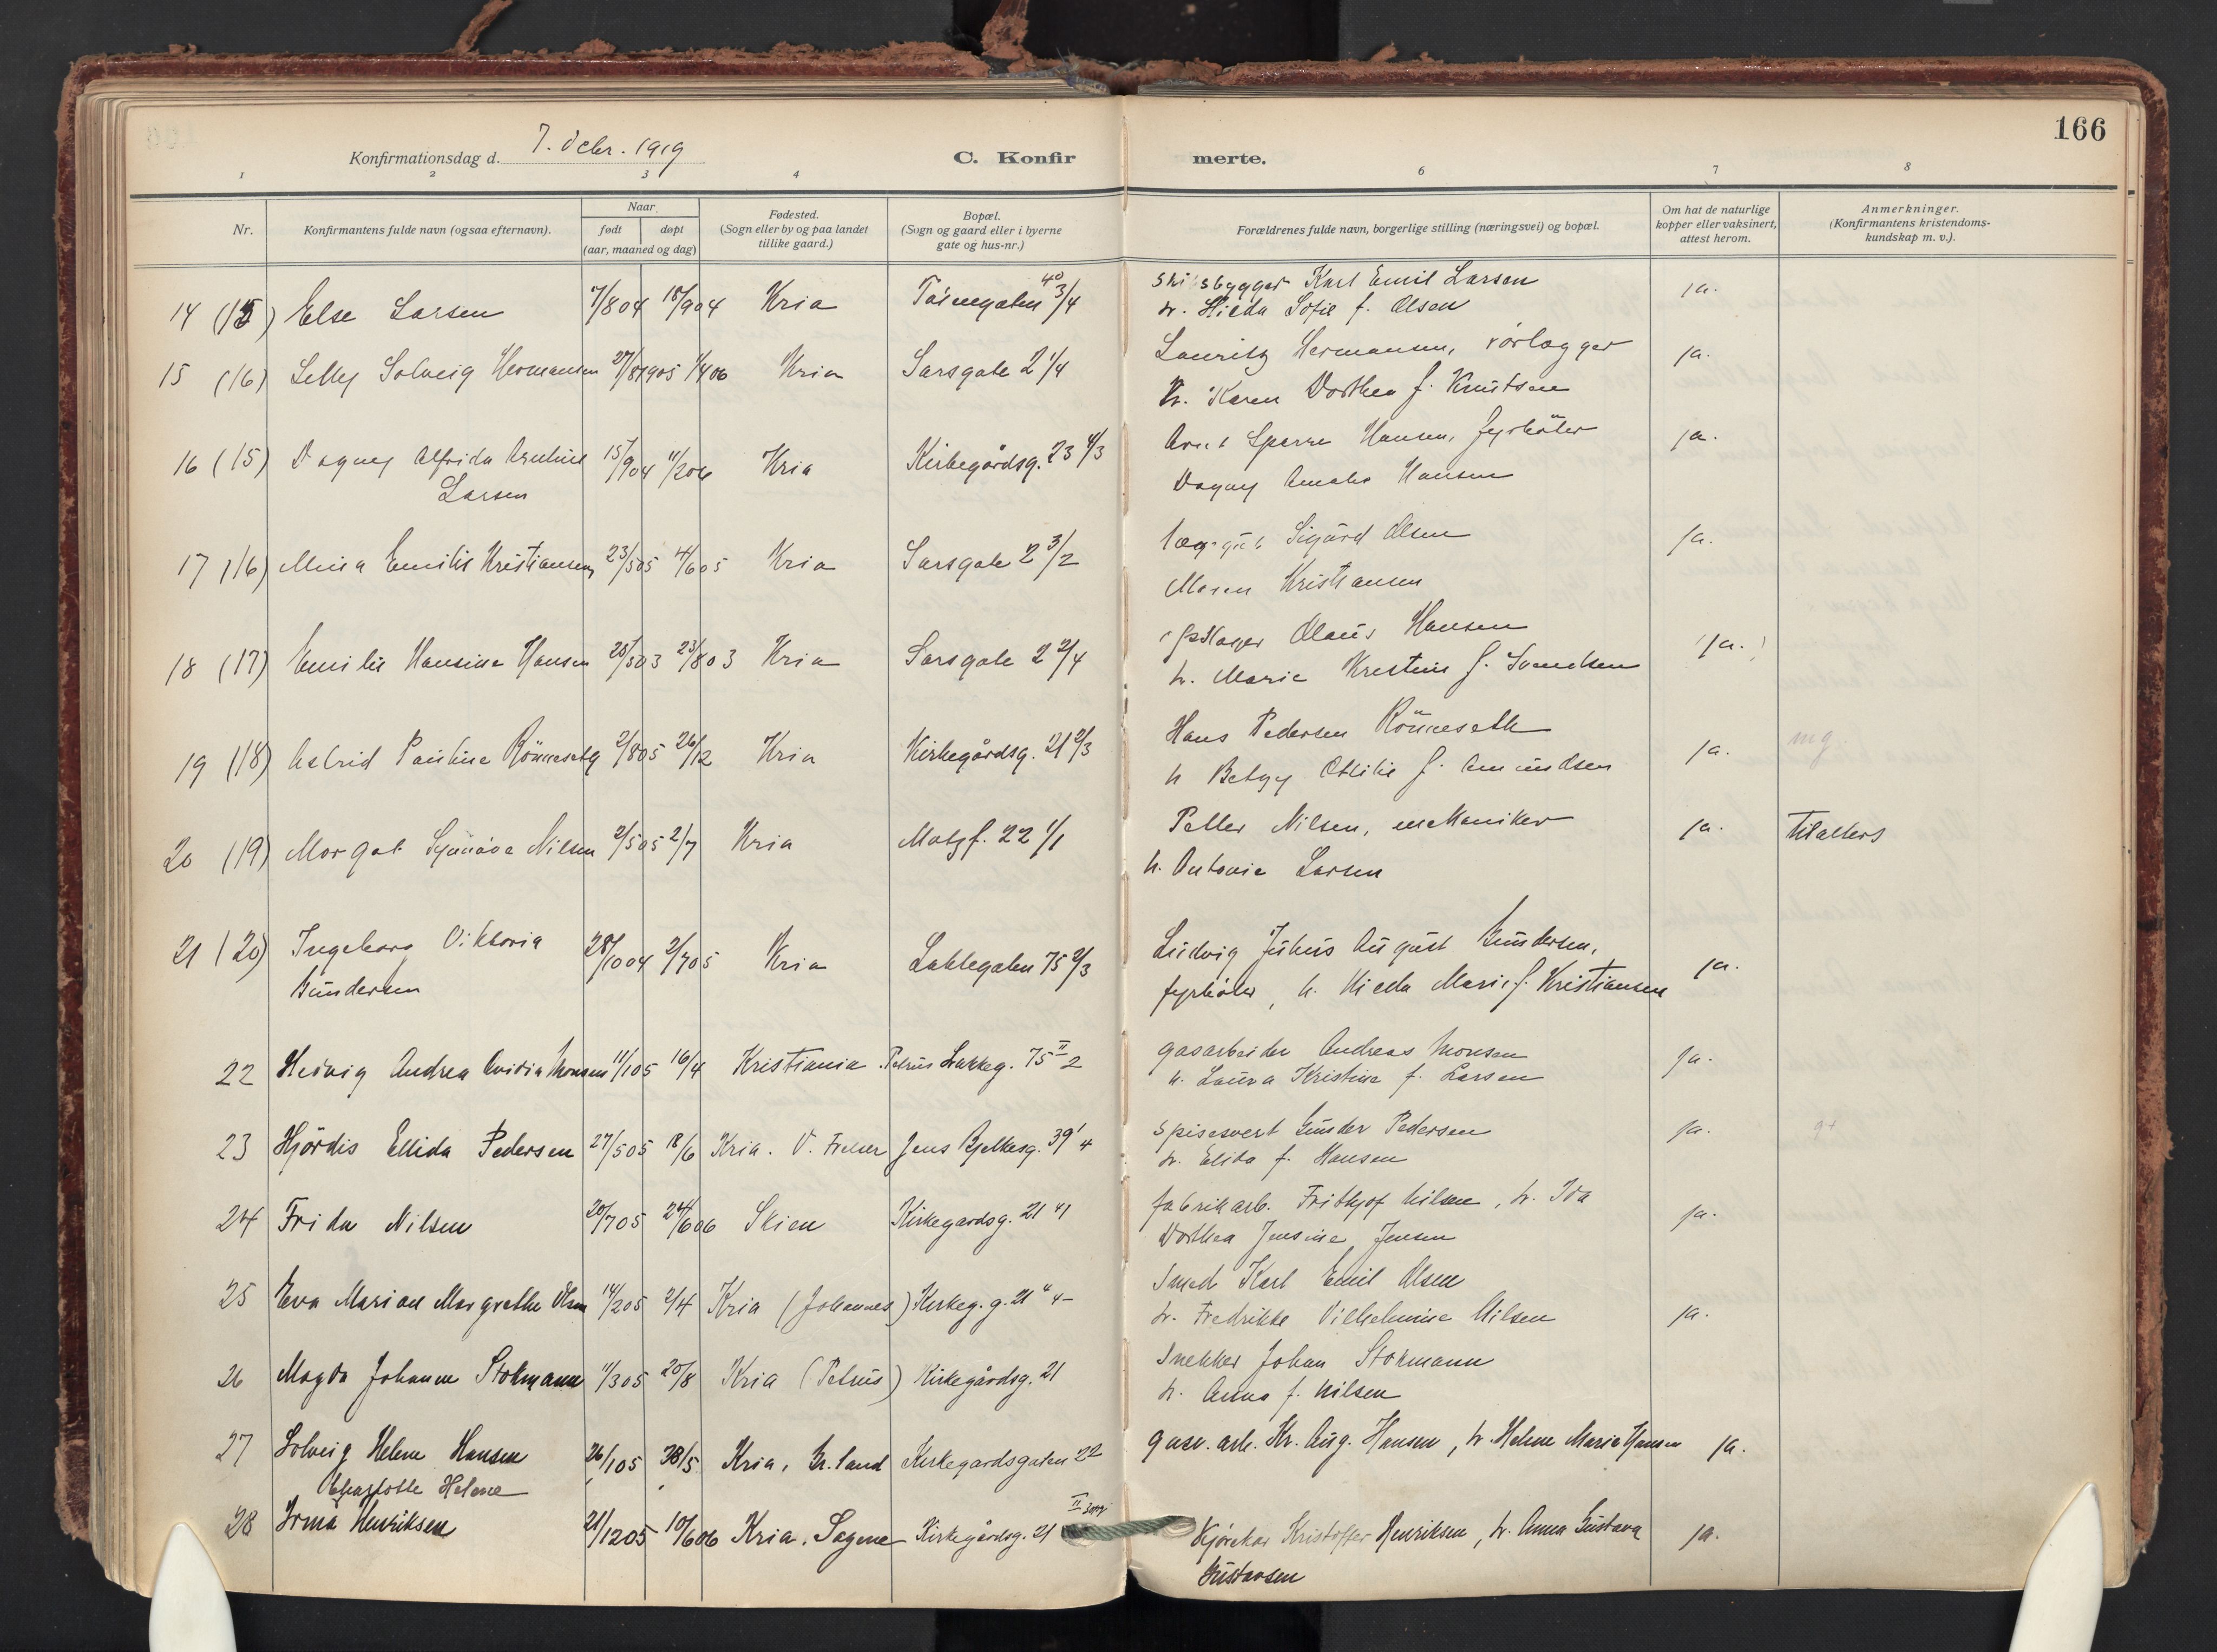 166
Konfirmationsdag d. 7. Decbr. 1919
C. Konfir merte.
1 2 3 4 6 7 8
Nr.
Konfirmantens fulde navn (ogsaa efternavn).
Naar
født døpt
(aar, maaned og dag)
Fødested.
(Sogn eller by og paa landet
tillike gaard.)
Bopæl.
(Sogn og gaard eller i byerne
gate og hus-nr.)
Forældrenes fulde navn, borgerlige stilling (næringsvei) og bopæl.
Om hat de naturlige
kopper eller vaksinert,
attest herom.
Anmerkninger.
(Konfirmantens kristendoms-
kundskap m. v.).
14 Else Larsen 7/8 04 18/9 04 Kria 3/4 Karl Emil Larsen ja.
h. Hilda Sofie f. Olsen
15 (16) Solveig Hermansen 27/8 1905 1/4 06 Kria Sarsgate 2 1/4 Lauritz Hermansen, rørlegger ja.
h. Karen Dorthea f. Knutsen
16 (15) Dagny Alfrida 15/9 04 11/2 06 Kria Kirkegårdsg. 23 4/3 Sperre Hansen, fyrbøter ja.
Larsen Dagny Amalia Hansen
17 (16) Emilie Kristiansen 23/5 05 4/6 05 Kria Sarsgate 2 3/2 Sigurd Olsen ja.
Maren Kristiansen
18 (17) Emilie Hansine Hansen 25/5 03 23/8 03 Kria Sarsgate 2 2/4 Olaus Hansen (ja.)
h. Marie Kristine f. Svendsen
19 (18) Astrid Pauline Rönneseth 2/8 05 26/12 Kria Kirkegårdsg. 21 2/3 Hans Pedersen Rönneseth ja. mg.
h Betzy Ottilie f. Amundsen
20 (19) Margot Synnöve Nilsen 2/5 05 2/7 Kria Motzf. 22 1/1 Petter Nilsen, mekaniker ja. tilalters
h. Antonie Larsen
21 (20) Ingeborg Viktoria 28/10 04 2/7 05 Kria Lakkegaten 75 2/3 Ludvig Julius August Gundersen, ja.
Gundersen fyrbøter, h. Hilda Marie f. Kristiansen
22 Hedvig Andrea Monsen 11/1 05 16/4 Kristiania. Petrus Lakkeg. 75 II 2 gasarbeider Andreas Monsen ja.
h. Laura Kristine f. Larsen
23 Hjördis Ellida Pedersen 27/5 05 18/6 Kria. V. Frelser Jens Bjelkesg. 39 1 4 spisevert Gunder Pedersen ja.
h. Elida f. Hansen
24 Frida Nilsen 20/7 05 24/6 06 Skien Kirkegardsg. 21 fabrikarb. Frithjof Nilsen, h. Ida ja.
Dorthea Jensine Jensen
25 Eva Marian Margrethe Olsen 14/2 05 2/4 Kria (Johannes) Kirkeg. g. 21 Smed Karl Emil Olsen
h. Fredrikke Vilhelmine Nilsen ja.
26 Magda Johanne Stokmann 11/3 05 20/8 Kria (Petrus) Kirkegårdsg. 21 Snekker Johan Stokmann
h. Anna f. Nilsen
27 Solveig Helene Hansen 26/1 05 28/5 Kria, Gr.land Kirkegardsgaten 22 gasv. arb. Kr. Aug. Hansen, h. Helene Marie Hansen ja.
Charlotte Helene
28 Irma Henriksen 21/12 05 10/6 06 Kria. Sagene Kirkegårdsg. 21 II Kjørekar Kristoffer Henriksen, h. Anna Gustava ja.
Gustavsen